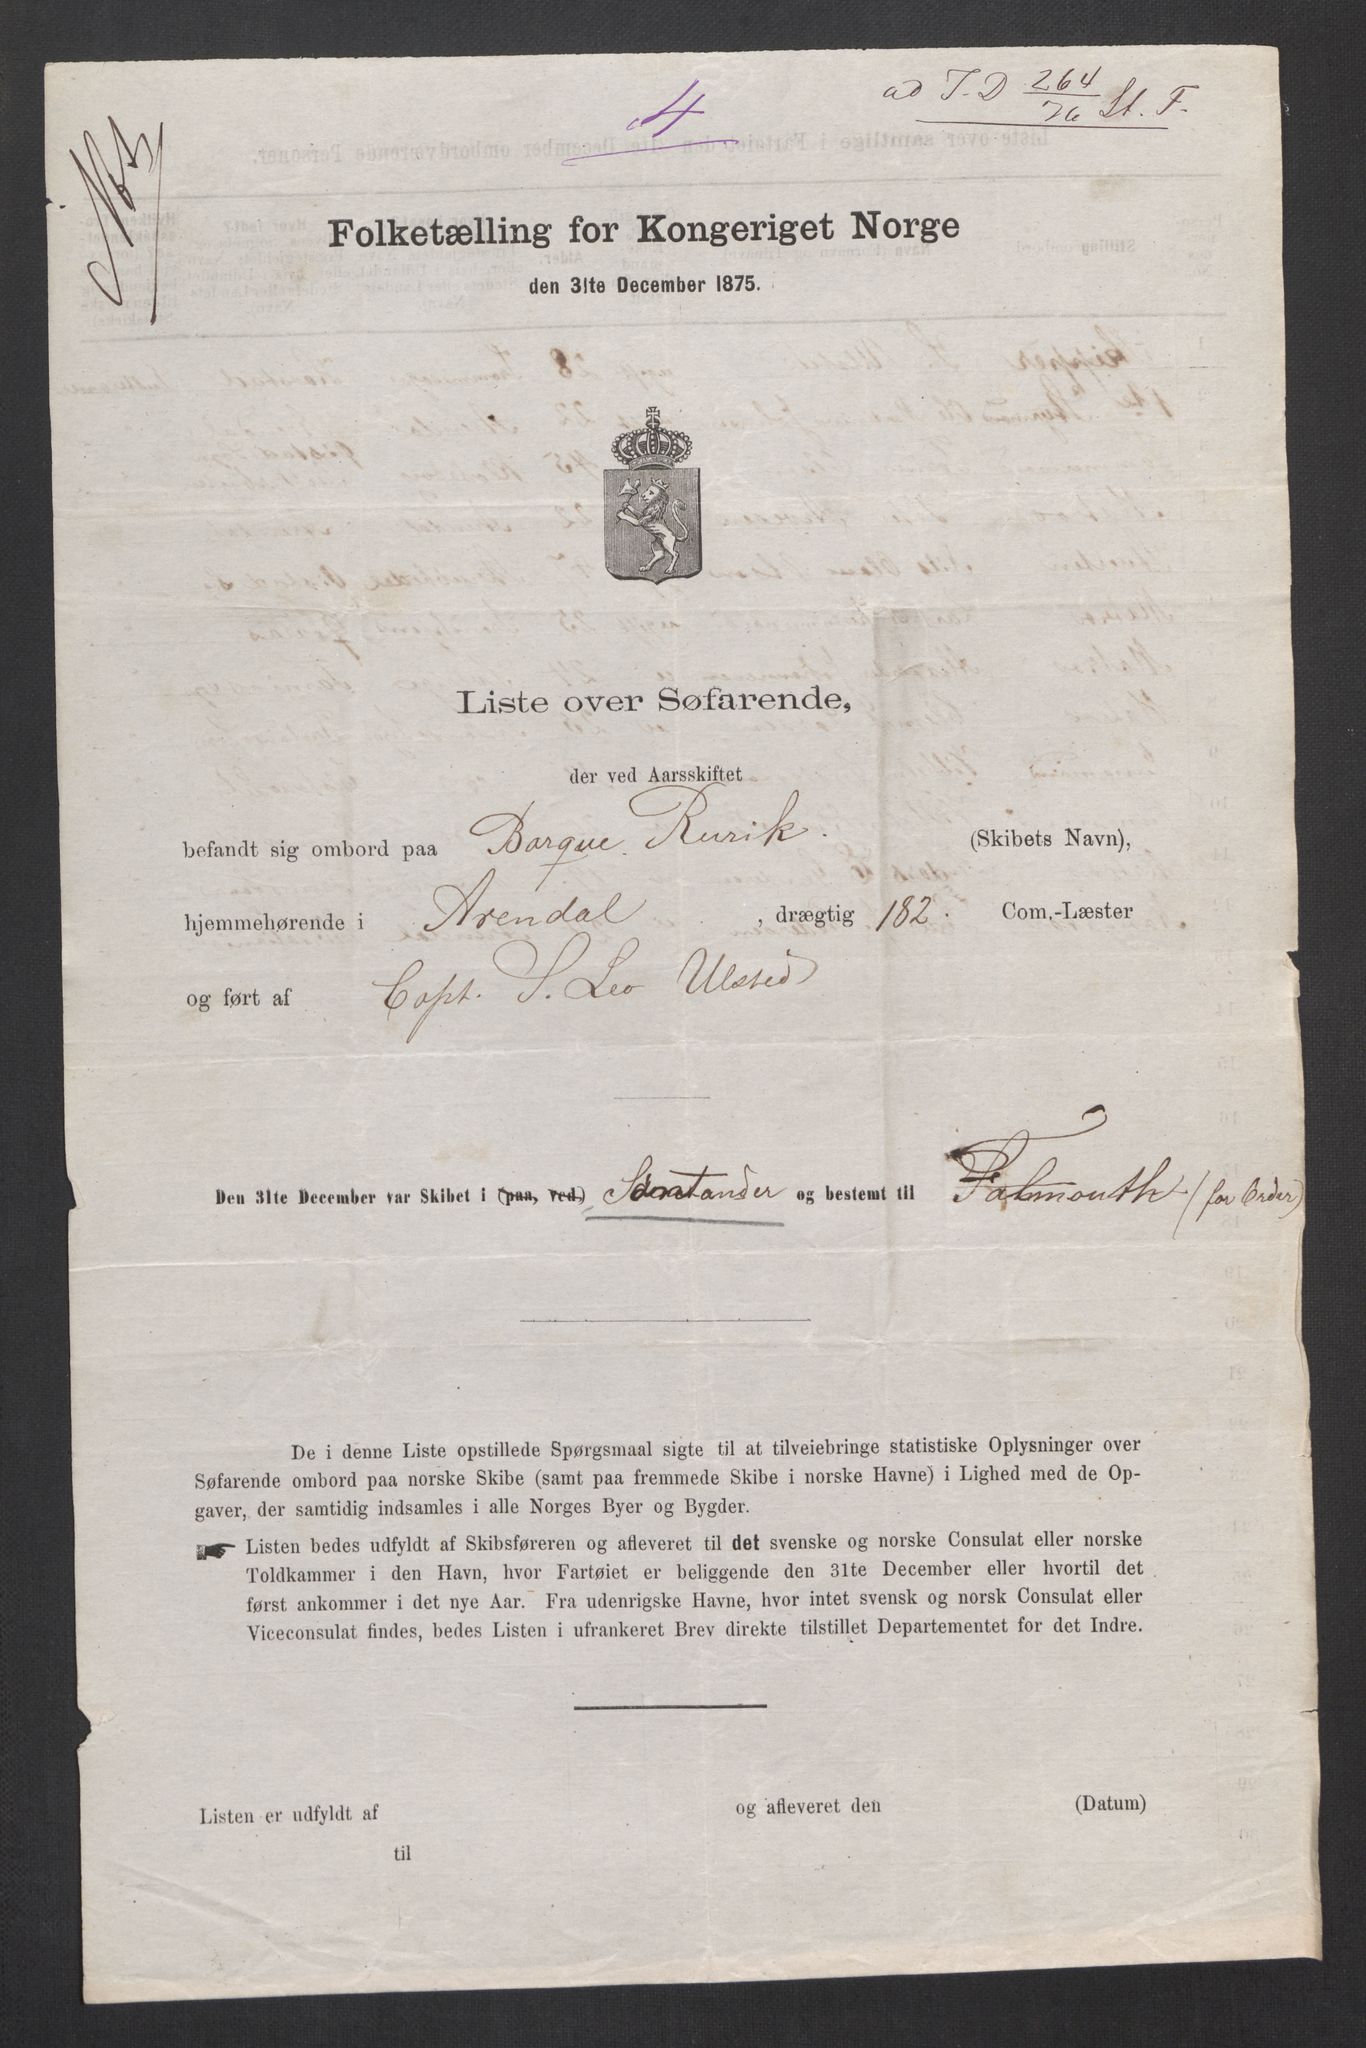 ad I. D 264/76 St. F.
4
Folketælling for Kongeriget Norge
den 31te December 1875.
Liste over Søfarende,
der ved Aarsskiftet
befandt sig ombord paa Barque Rurik. (Skibets Navn),
hjemmehørende i Arendal, drægtig 182. Com.-Læster
og ført af Capt. S. Leo Ulsted
Den 31te December var Skibet i (paa, ved) Santander og bestemt til Falmouth (for Order)
De i denne Liste opstillede Spørgsmaal sigte til at tilveiebringe statistiske Oplysninger over
Søfarende ombord paa norske Skibe (samt paa fremmede Skibe i norske Havne) i Lighed med de Op-
gaver, der samtidig indsamles i alle Norges Byer og Bygder.
Listen bedes udfyldt af Skibsføreren og afleveret til det svenske og norske Consulat eller norske
Toldkammer i den Havn, hvor Fartøiet er beliggende den 31te December eller hvortil det
først ankommer i det nye Aar. Fra udenrigske Havne, hvor intet svensk og norsk Consulat eller
Viceconsulat findes, bedes Listen i ufrankeret Brev direkte tilstillet Departementet for det Indre.
Listen er udfyldt af og afleveret den (Datum)
til